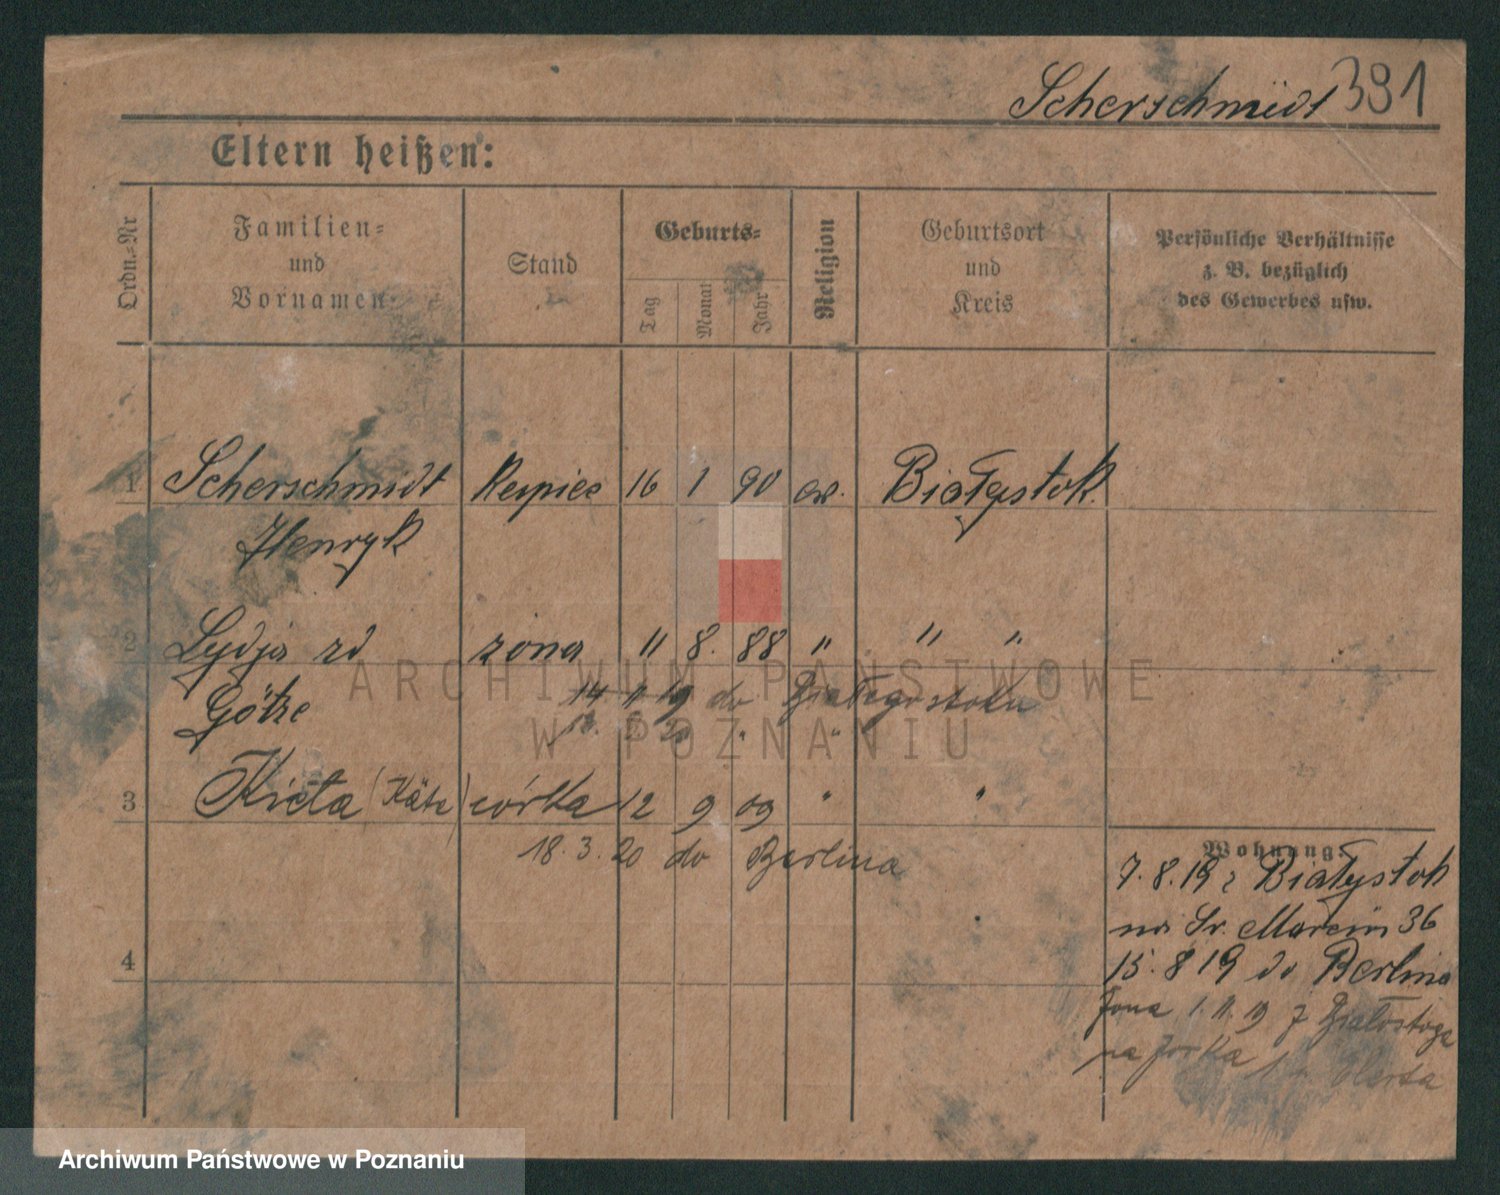 Scherschmidt 391
Eltern heißen:
Ordn.-Nr
Familien-
und
Vornamen
Stand
Geburts-
Tag
Monat
Jahr
Religion
Geburtsort
und
Kreis
Persönliche Verhältnisse
z. B. bezüglich
des Gewerbes usw.
1 Scherschmidt Kupiec 16 1 90 ew. Białystok
Henryk
2 Lydja zd żona " 8. 88 " " "
Götze 14 11 19 do Białegostoku
3 Kieta (Käte) córka 12 9 09 " "
18. 3. 20 do Berlina
Wohnung:
7. 8. 19 z Białystok
na Św. Marcin 36
15. 8 19 do Berlina
żona 1. 11. 19 z
4
ARCHIWUM PAŃSTWOWE
W POZNANIU
Archiwum Państwowe w Poznaniu